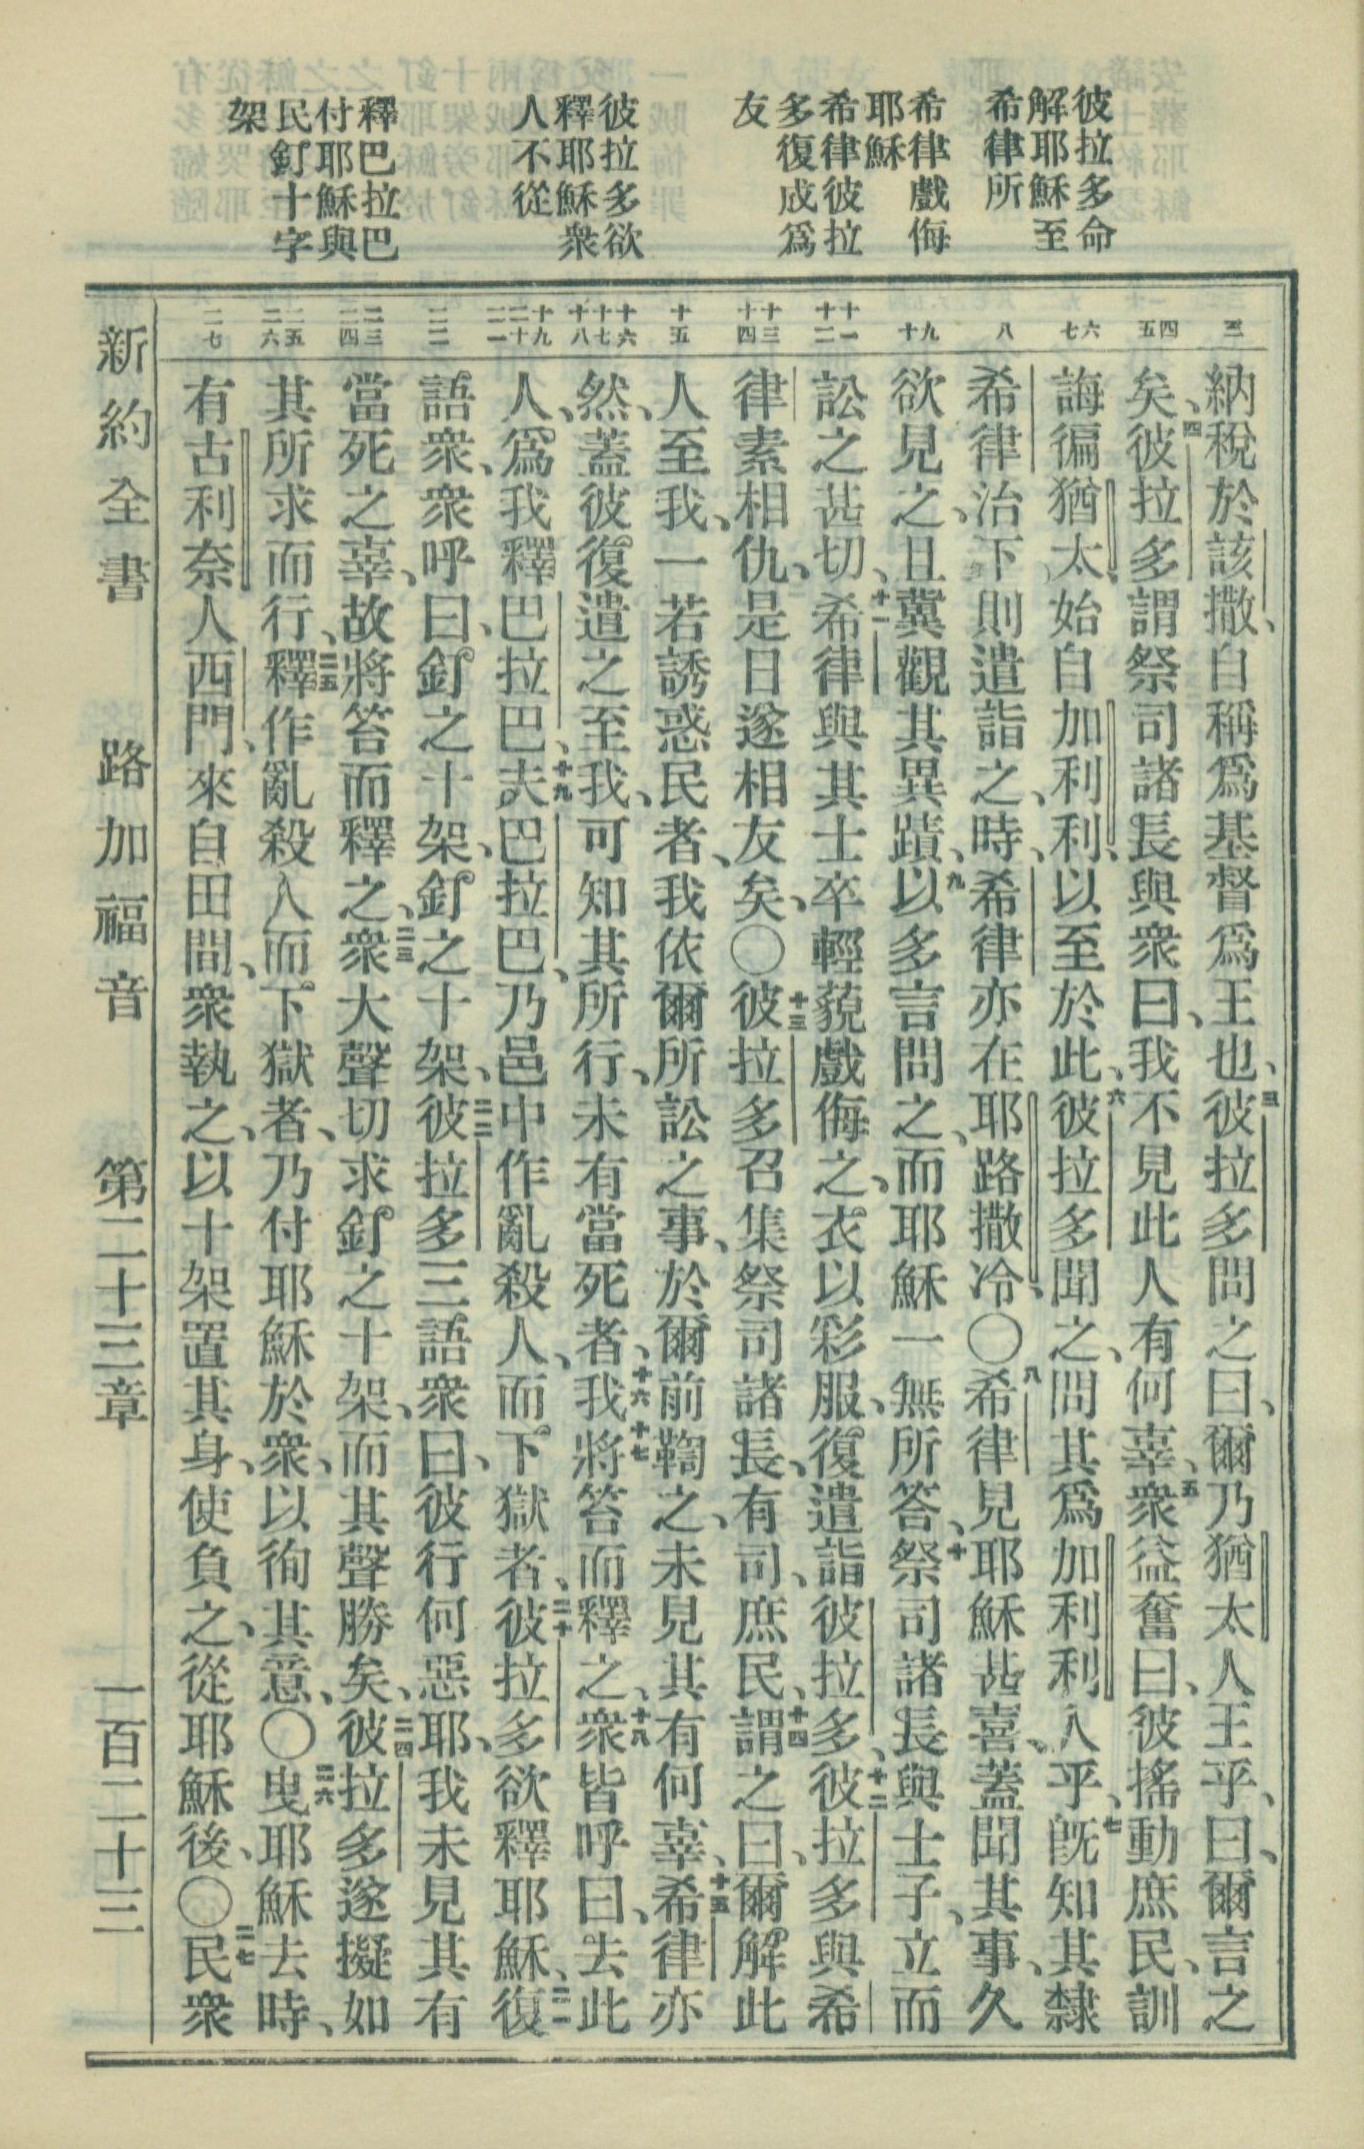 彼拉多命
解耶穌至
希律所
希律戲侮
耶穌
希律彼拉
多復成爲
友
彼拉多欲
釋耶穌衆
人不從
釋巴拉巴
付耶穌與
民釘十字
架
三
四
五
六
七
八
九
十
十一
十二
十三
十四
十五
十六
十七
十八
十九
二十
二一
二二
二三
二四
二五
二六
二七
納稅於該撒、自稱爲基督爲王也、三彼拉多問之曰、爾乃猶太人王乎、曰、爾言之
矣、四彼拉多謂祭司諸長與衆曰、我不見此人有何辜、五衆益奮曰、彼搖動庶民、訓
誨徧猶太、始自加利利、以至於此、六彼拉多聞之、問其爲加利利人乎、七旣知其隸
希律治下、則遣詣之、時、希律亦在耶路撒冷、〇八希律見耶穌甚喜、蓋聞其事、久
欲見之、且冀觀其異蹟、九以多言問之、而耶穌一無所答、十祭司諸長與士子、立而
訟之甚切、十一希律與其士卒輕藐戲侮之、衣以彩服、復遣詣彼拉多、十二彼拉多與希
律素相仇、是日遂相友矣、〇十三彼拉多召集祭司諸長、有司、庶民、十四謂之曰、爾解此
人至我、一若誘惑民者、我依爾所訟之事、於爾前鞫之、未見其有何辜、十五希律亦
然、蓋彼復遣之至我、可知其所行、未有當死者、十六我將笞而釋之、十七十八衆皆呼曰、去此
人、爲我釋巴拉巴、十九夫巴拉巴、乃邑中作亂殺人、而下獄者、二十彼拉多欲釋耶穌、二一復
語衆、衆呼曰、釘之十架、釘之十架、二二彼拉多三語衆曰、彼行何惡耶、我未見其有
當死之辜、故將笞而釋之、二三衆大聲切求釘之十架、而其聲勝矣、二四彼拉多遂擬如
其所求而行、二五釋作亂殺人而下獄者、乃付耶穌於衆、以徇其意、〇二六曳耶穌去時、
有古利奈人西門、來自田間、衆執之、以十架置其身、使負之、從耶穌後、〇二七民衆
新約全書　路加福音　第二十三章　一百二十三